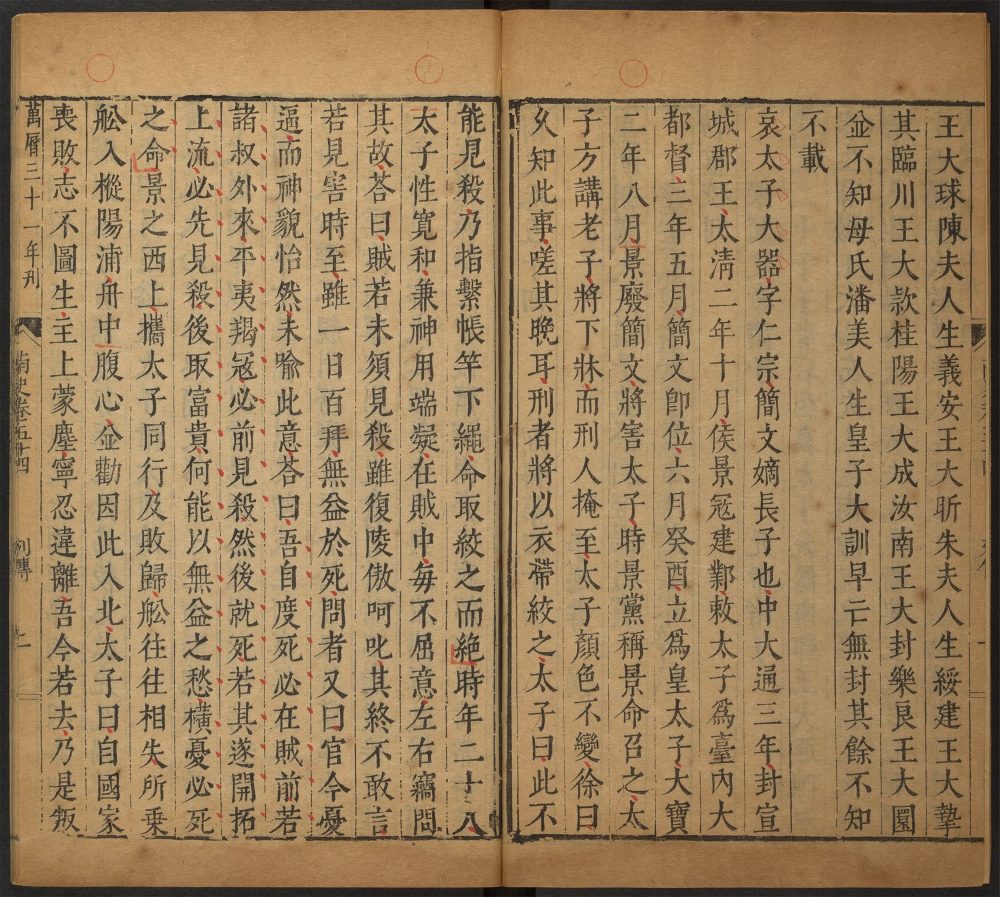 王大球陳夫人生義安王大昕朱夫人生綏建王大摯
其臨川王大款桂陽王大成汝南王大封樂良王大圜
並不知母氏潘美人生皇子大訓早亡無封其餘不知
不載
哀太子大器字仁宗簡文嫡長子也中大通三年封宣
城郡王太清二年十月侯景冦建鄴敕太子爲臺內大
都督三年五月簡文卽位六月癸酉立爲皇太子大寶
二年八月景廢簡文將害太子時景黨稱景命召之太
子方講老子將下牀而刑人掩至太子顏色不變徐曰
乆知此事嗟其晚耳刑者將以衣帶絞之太子曰此不
能見殺乃指繫帳竿下繩命取絞之而絕時年二十八
太子性寛和兼神用端嶷在賊中每不屈意左右竊問
其故荅曰賊若未須見殺雖復陵傲呵叱其終不敢言
若見害時至雖一日百拜無益於死問者又曰官今憂
逼而神貌怡然未喻此意荅曰吾自度死必在賊前若
諸叔外來平夷羯冦必前見殺然後就死若其遂開拓
上流必先見殺後取富貴何能以無益之愁橫憂必死
之命景之西上攜太子同行及敗歸舩往往相失所乗
舩入樅陽浦舟中腹心並勸因此入北太子曰自國家
喪敗志不圖生主上蒙塵寧忍違離吾今若去乃是叛
萬曆三十一年刋
南史卷五十四
列傳